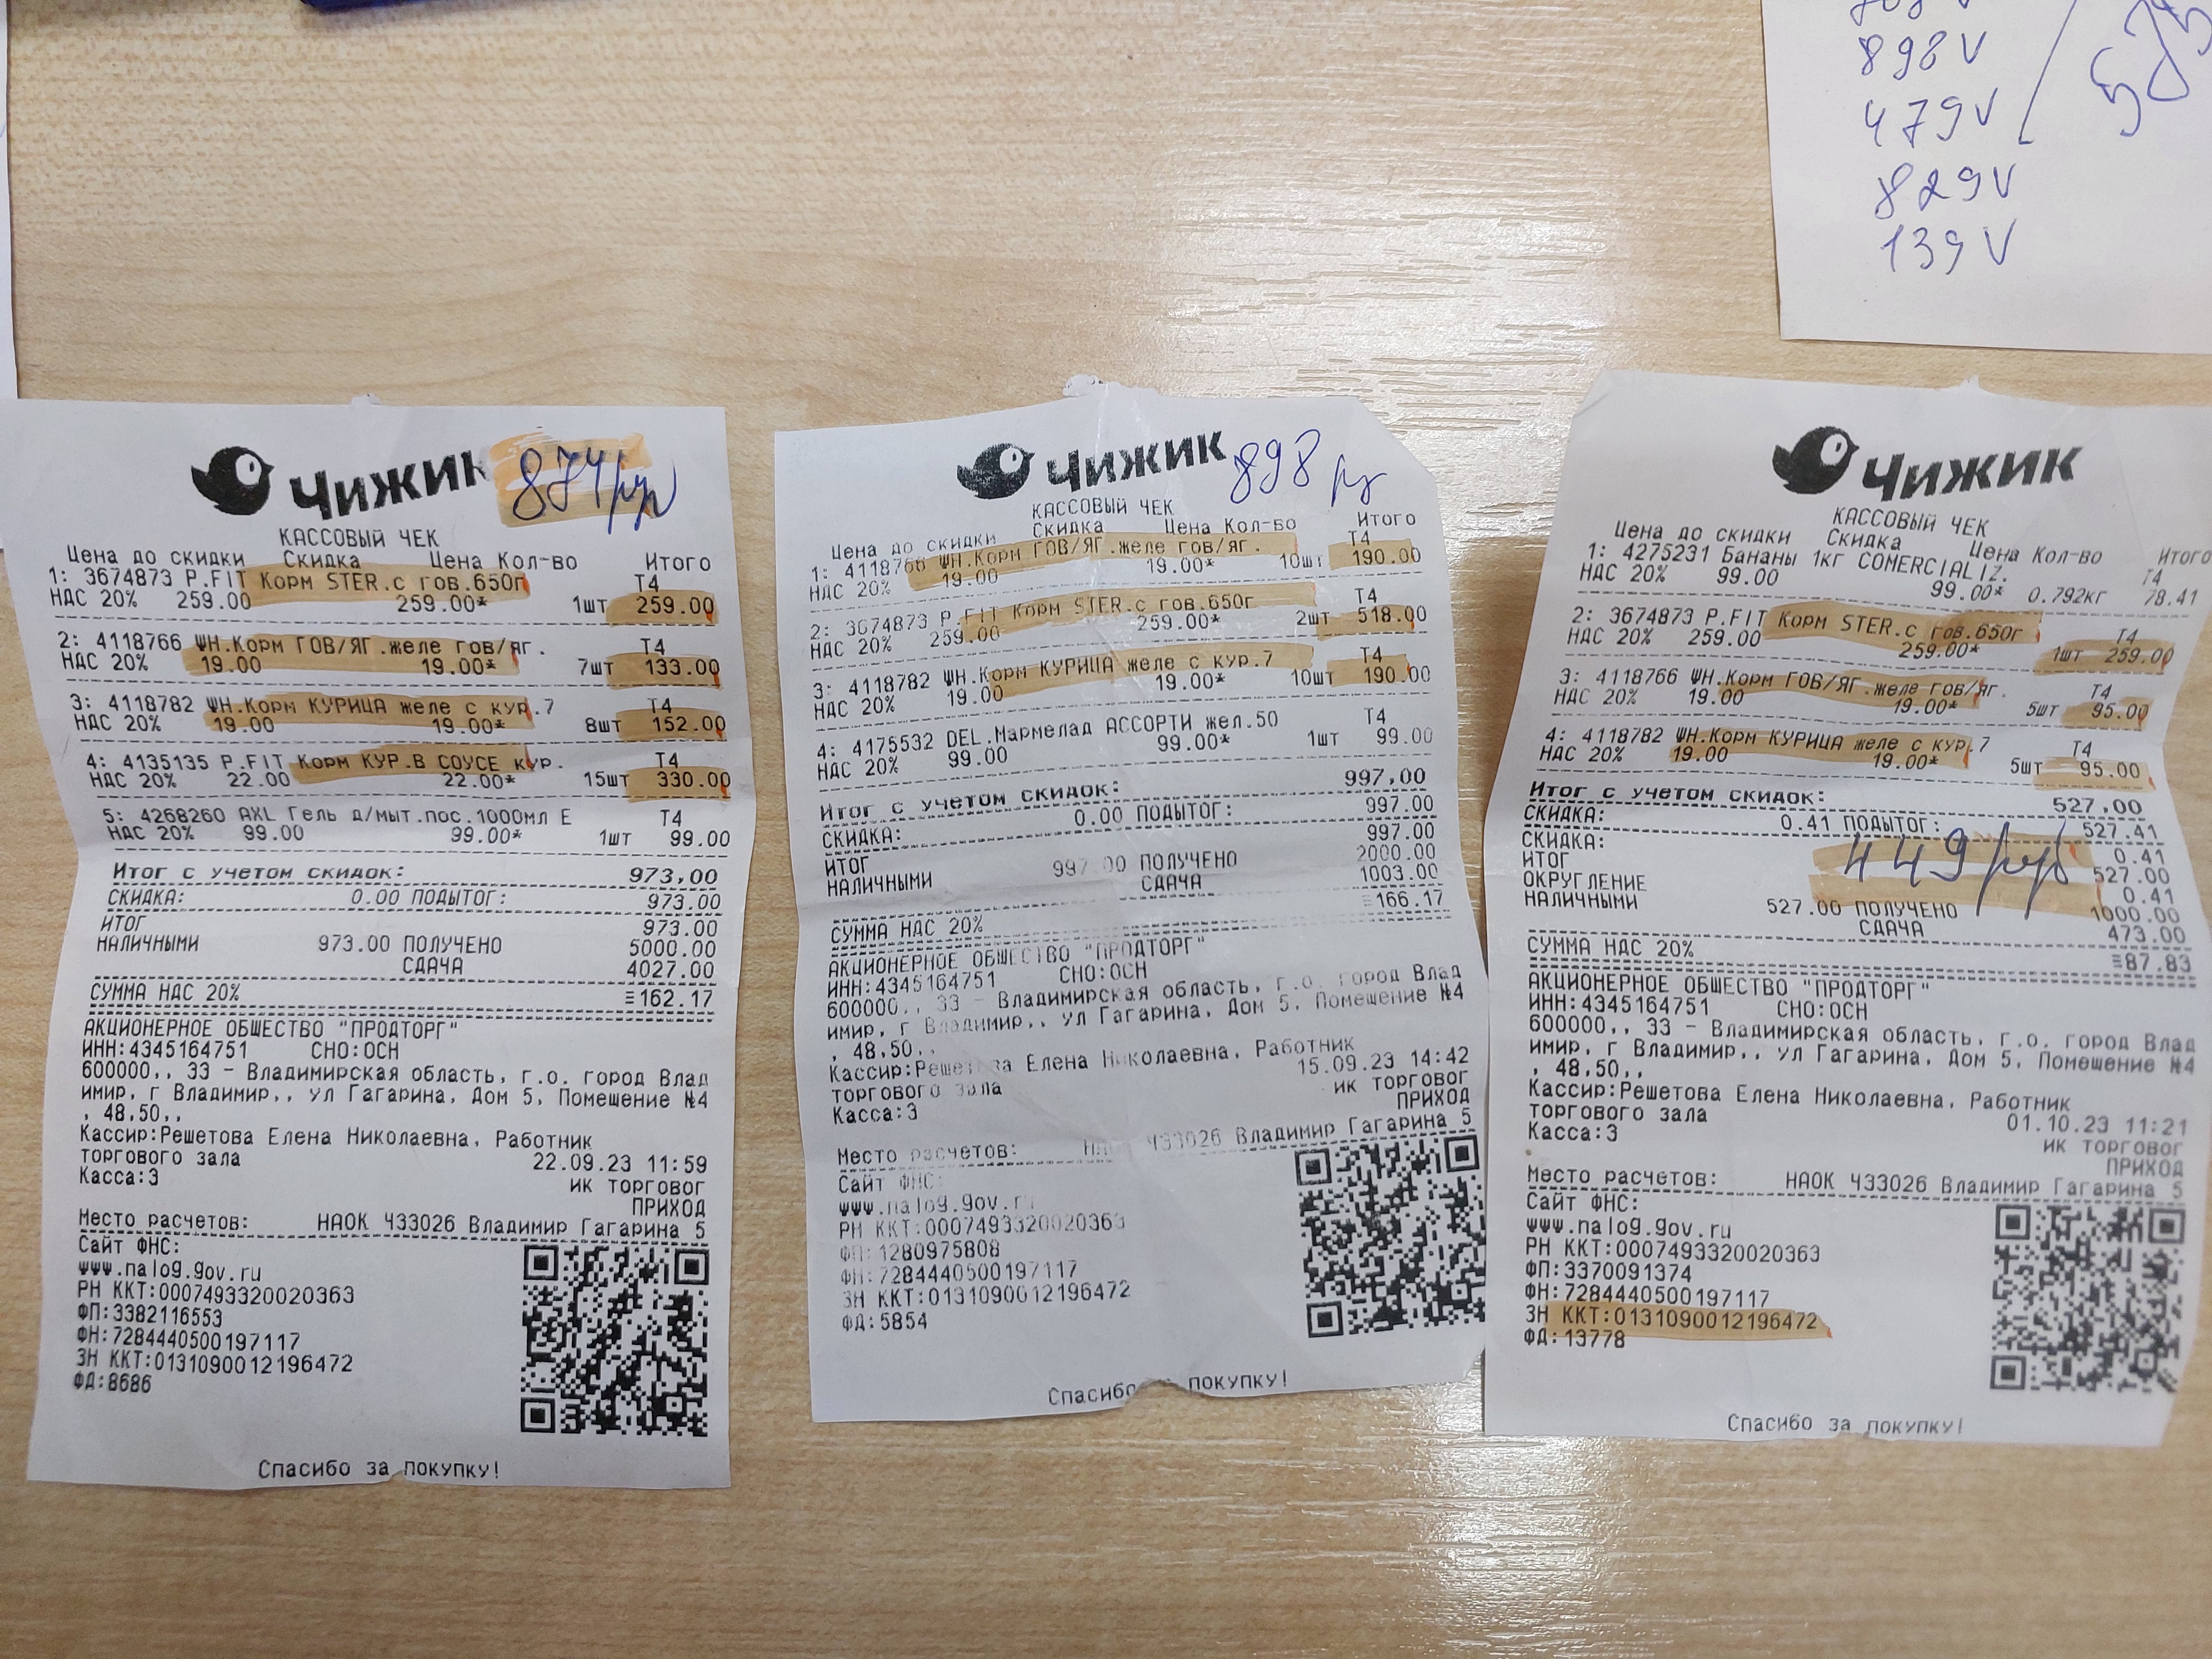 898 V
479 V
829 V
139 V
Чижик
874 руб
КАССОВЫЙ ЧЕК
Цена до скидки Скидка Цена Кол-во Итого
1: 3674873 P.FIT Корм STER.с гов.650г Т4
НДС 20% 259.00 259.00* 1шт 259.00
2: 4118766 ШН.Корм ГОВ/ЯГ.желе гов/яг. Т4
НДС 20% 19.00 19.00* 7шт 133.00
3: 4118782 ШН.Корм КУРИЦА желе с кур.7 Т4
НДС 20% 19.00 19.00* 8шт 152.00
4: 4135135 P.FIT Корм КУР.В СОУСЕ кур. Т4
НДС 20% 22.00 22.00* 15шт 330.00
5: 4268260 AXL Гель д/мыт.пос.1000мл Е Т4
НДС 20% 99.00 99.00* 1шт 99.00
Итог с учетом скидок: 973,00
СКИДКА: 0.00 ПОДЫТОГ: 973.00
ИТОГ 973.00
НАЛИЧНЫМИ 973.00 ПОЛУЧЕНО 5000.00
СДАЧА 4027.00
СУММА НДС 20% =162.17
АКЦИОНЕРНОЕ ОБЩЕСТВО "ПРОДТОРГ"
ИНН:4345164751 СНО:ОСН
600000,, 33 - Владимирская область, г.о. город Влад
имир, г Владимир,, ул Гагарина, Дом 5, Помещение №4
, 48,50,,
Кассир:Решетова Елена Николаевна, Работник
торгового зала 22.09.23 11:59
Касса:3 ик торговог
ПРИХОД
Место расчетов: НАОК Ч33026 Владимир Гагарина 5
Сайт ФНС:
www.nalog.gov.ru
РН ККТ:0007493320020363
ФП:3382116553
ФН:7284440500197117
ЗН ККТ:0131090012196472
ФД:8686
Спасибо за покупку!
Чижик
898 р
КАССОВЫЙ ЧЕК
Цена до скидки Скидка Цена Кол-во Итого
1: 4118766 ШН.Корм ГОВ/ЯГ.желе гов/яг. Т4
НДС 20% 19.00 19.00* 10шт 190.00
2: 3674873 P.FIT Корм STER.с гов.650г Т4
НДС 20% 259.00 259.00* 2шт 518.00
3: 4118782 ШН.Корм КУРИЦА желе с кур.7 Т4
НДС 20% 19.00 19.00* 10шт 190.00
4: 4175532 DEL.Мармелад АССОРТИ жел.50 Т4
НДС 20% 99.00 99.00* 1шт 99.00
Итог с учетом скидок: 997,00
СКИДКА: 0.00 ПОДЫТОГ: 997.00
ИТОГ 997.00
НАЛИЧНЫМИ 997.00 ПОЛУЧЕНО 2000.00
СДАЧА 1003.00
СУММА НДС 20% =166.17
АКЦИОНЕРНОЕ ОБЩЕСТВО "ПРОДТОРГ"
ИНН:4345164751 СНО:ОСН
600000,, 33 - Владимирская область, г.о. город Влад
имир, г Владимир,, ул Гагарина, Дом 5, Помещение №4
, 48,50,,
Кассир:Решетова Елена Николаевна, Работник
торгового зала 15.09.23 14:42
Касса:3 ик торговог
ПРИХОД
Место расчетов: Ч33026 Владимир Гагарина 5
Сайт ФНС:
www.nalog.gov.ru
РН ККТ:0007493320020363
ФП:1280975808
ФН:7284440500197117
ЗН ККТ:0131090012196472
ФД:5854
Спасибо покупку!
Чижик
КАССОВЫЙ ЧЕК
Цена до скидки Скидка Цена Кол-во Итого
1: 4275231 Бананы 1кг COMERCIALIZ. Т4
НДС 20% 99.00 99.00* 0.792кг 78.41
2: 3674873 P.FIT Корм STER.с гов.650г Т4
НДС 20% 259.00 259.00* 1шт 259.00
3: 4118766 ШН.Корм ГОВ/ЯГ.желе гов/яг. Т4
НДС 20% 19.00 19.00* 5шт 95.00
4: 4118782 ШН.Корм КУРИЦА желе с кур.7 Т4
НДС 20% 19.00 19.00* 5шт 95.00
Итог с учетом скидок: 527,00
СКИДКА: 0.41 ПОДЫТОГ: 527.41
СКИДКА: 0.41
449 руб
ИТОГ 527.00
ОКРУГЛЕНИЕ 0.41
НАЛИЧНЫМИ 527.00 ПОЛУЧЕНО 1000.00
СДАЧА 473.00
СУММА НДС 20% =87.83
АКЦИОНЕРНОЕ ОБЩЕСТВО "ПРОДТОРГ"
ИНН:4345164751 СНО:ОСН
600000,, 33 - Владимирская область, г.о. город Влад
имир, г Владимир,, ул Гагарина, Дом 5, Помещение №4
, 48,50,,
Кассир:Решетова Елена Николаевна, Работник
торгового зала 01.10.23 11:21
Касса:3 ик торговог
ПРИХОД
Место расчетов: НАОК Ч33026 Владимир Гагарина 5
Сайт ФНС:
www.nalog.gov.ru
РН ККТ:0007493320020363
ФП:3370091374
ФН:7284440500197117
ЗН ККТ:0131090012196472
ФД:13778
Спасибо за покупку!